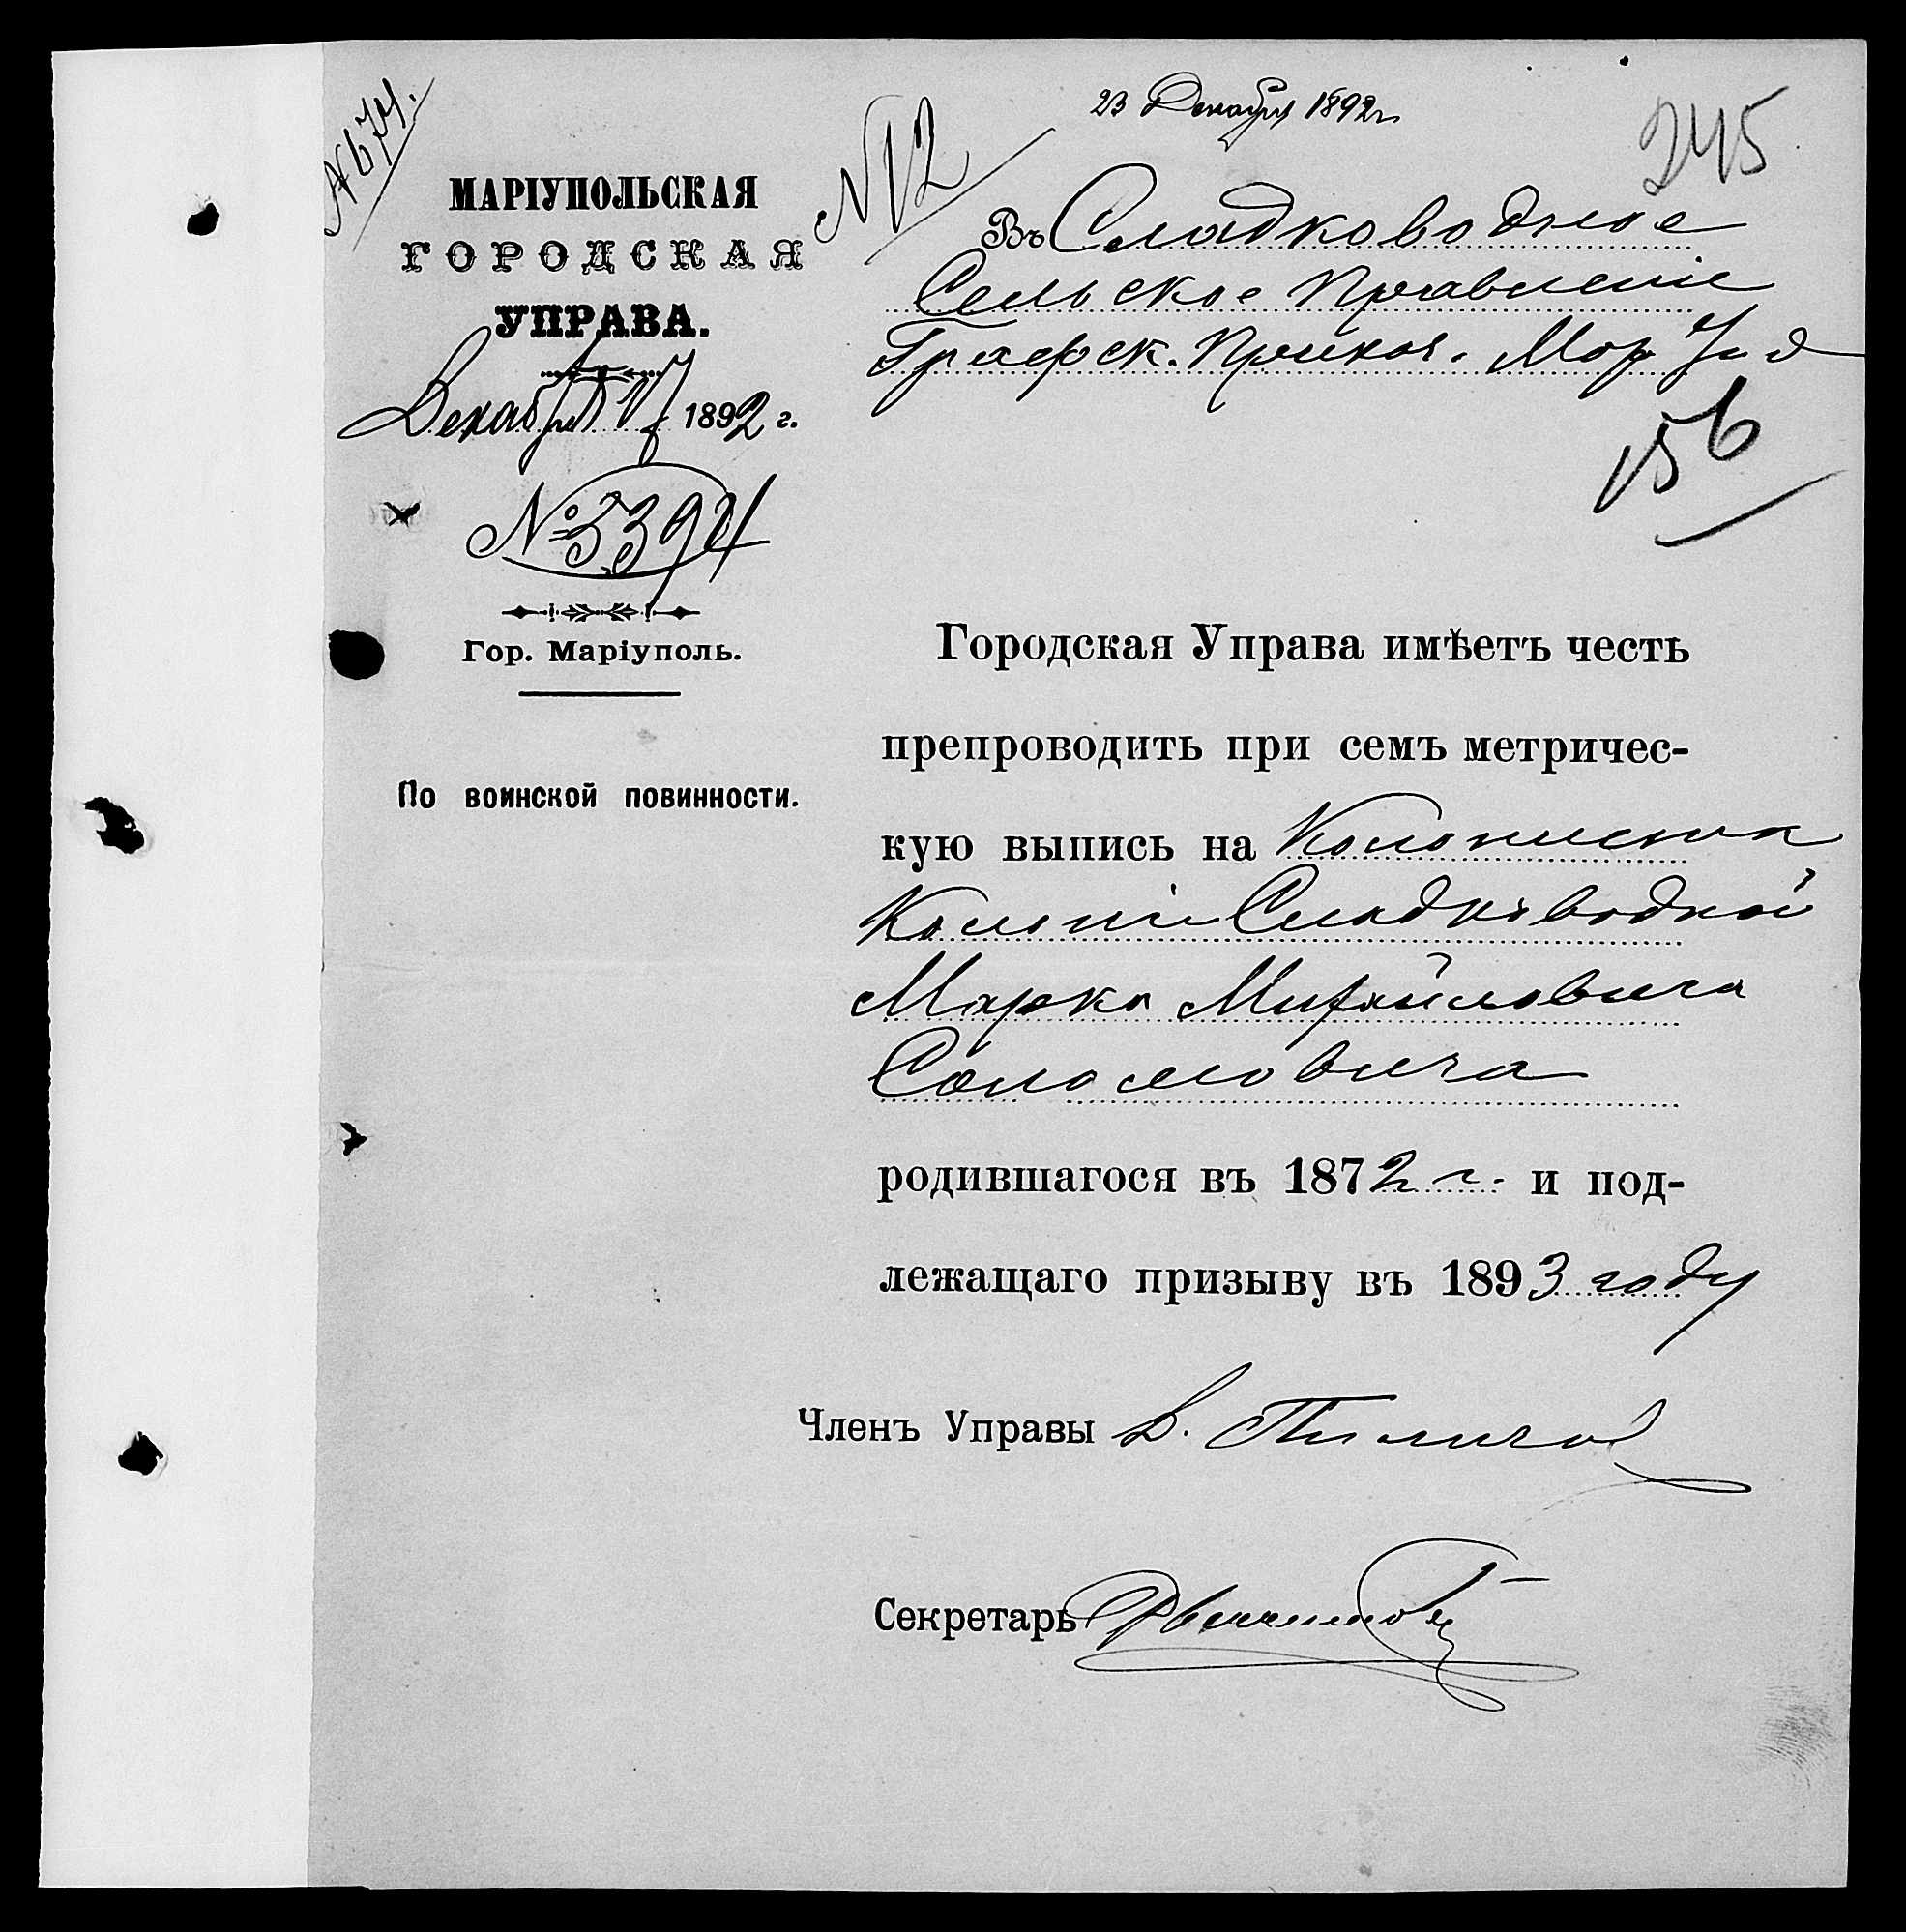 № 674.
23 Декабря 1892 г.
№ 12
245
МАРІУПОЛЬСКАЯ
ГОРОДСКАЯ
УПРАВА.
Декабря 17 1892 г.
№ 3394
Гор. Маріуполь.
По воинской повинности.
Въ Сладководное
Сельское Правленіе
Графск. Приказ. Мар. Уѣз
156
Городская Управа имѣетъ честь
препроводить при семъ метричес-
кую выпись на Колониста
Колоніи Сладководной
Марка Михайловича
Соломовича
родившагося въ 1872 г. и под-
лежащаго призыву въ 1893 году
Членъ Управы
Секретарь